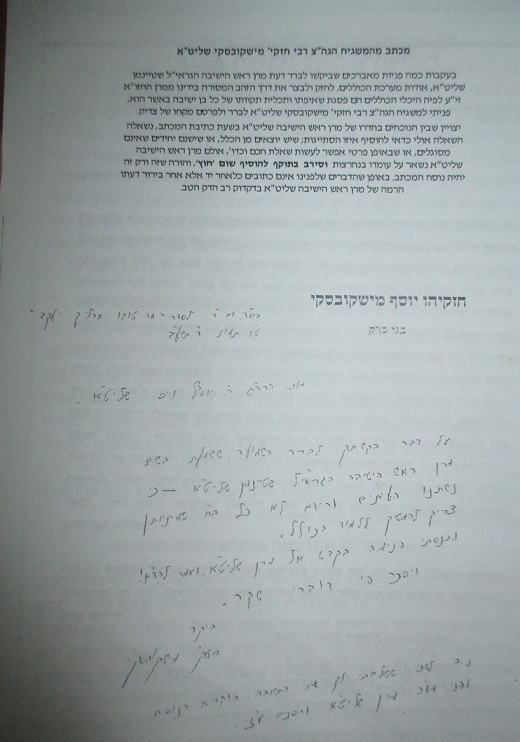 מכתב מהמשגיח הגה"צ רבי חזקי' מישקובסקי שליט"א
בעקבות כמה פניות מאברכים שביקשו לברר דעת מרן ראש הישיבה הגראי"ל שטיינמן
שליט"א, אודות מערכת הכוללים, לחזק ולבצר את דרך הזהב המסורה בידינו ממרן החזו"א
זי"ע לפיה היכלי הכוללים הם פסגת שאיפתו ותכלית תקוותו של כל בן ישיבה באשר הוא,
פניתי למשגיח הגה"צ רבי חזקי' מישקובסקי שליט"א לברר ולפרסם מקחו של צדיק.
יצויין שבין הנוכחים בחדרו של מרן ראש הישיבה שליט"א בשעת כתיבת המכתב, נשאלה
השאלה אולי כדאי להוסיף איזו הסתייגות; שיש יוצאים מן הכלל, או שישנם יחידים שאינם
מסוגלים, או שבאופן פרטי אפשר לעשות שאלת חכם וכדו', אולם מרן ראש הישיבה
שליט"א נשאר על עומדו בנחרצות וסירב בתוקף להוסיף שום 'חוץ', והורה שזה ורק זה
יהיה נוסח המכתב. באופן שהדברים שלפנינו אינם כתובים כלאחר יד אלא אחר בירור דעתו
הרמה של מרן ראש הישיבה שליט"א בדקדוק רב הדק הטב.
חזקיהו יוסף מישקובסקי
בני ברק
תמוז תשע"ב
שליט"א
על דבר בקשתך לברר השמועה ששמעת בשם
מרן ראש הישיבה הגראי"ל שטיינמן שליט"א – כי
נשתנו העיתים והיום לא כל
צריך להמשיך ללמוד בכולל.
ונכנסתי בקדש אל מרן שליט"א ואמר
כי דוברי שקר.
מישקובסקי
נ.ב. את התשובה הנוסח
לפני מרן שליט"א והסכים ע"ז.